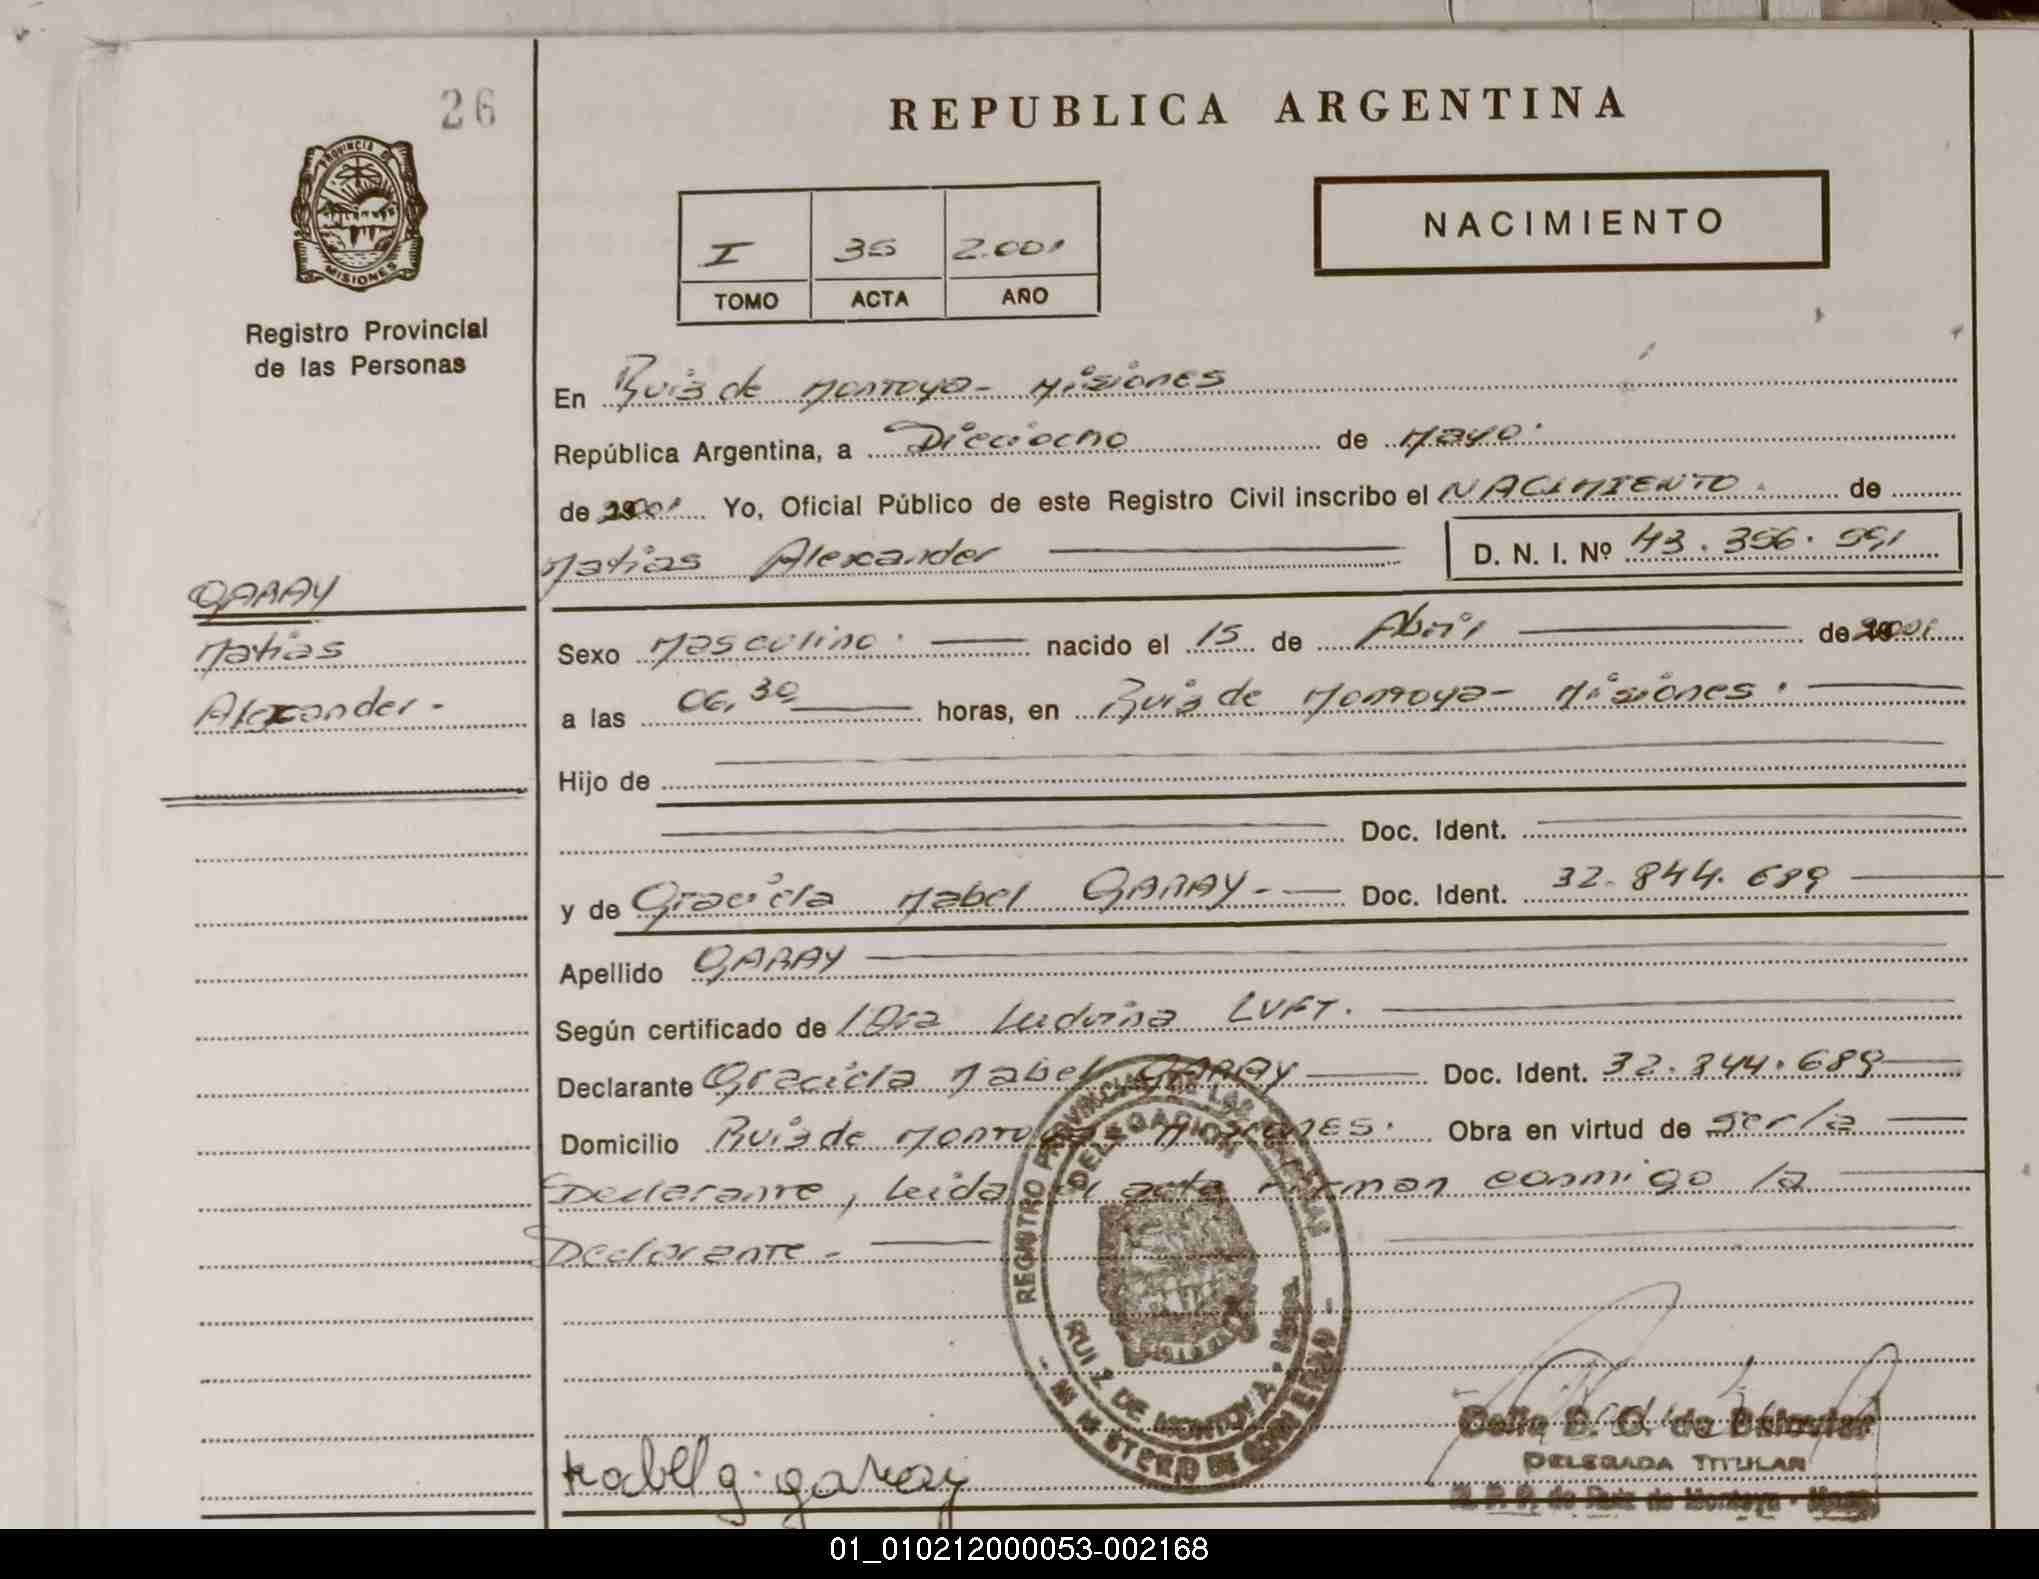 26
REPUBLICA ARGENTINA
PROVINCIA DE
MISIONES
Registro Provincial
de las Personas
I 35 2.001
TOMO ACTA AÑO
NACIMIENTO
En Ruiz de Montoya - Misiones
República Argentina, a Dieciocho de Mayo.
de 2001 Yo, Oficial Público de este Registro Civil inscribo el NACIMIENTO de
Matias Alexander D. N. I. Nº 43.356.591
GARAY
Matias
Alexander -
Sexo Masculino. nacido el 15 de Abril de 2001
a las 06,30 horas, en Ruiz de Montoya - Misiones.
Hijo de
Doc. Ident.
y de Graciela Mabel GARAY - Doc. Ident. 32.844.689
Apellido GARAY
Según certificado de Ludvina LUFT.
Declarante Graciela Mabel GARAY Doc. Ident. 32.844.689
Domicilio Ruiz de Montoya - Misiones. Obra en virtud de ser la
Declarante, leida el acta firman conmigo la
Declarante -
REGISTRO PROVINCIAL DE LAS PERSONAS
DELEGACION
RUIZ DE MONTOYA - Mnes.
- MINISTERIO DE GOBIERNO -
Mabel g. garay
DELEGADA TITULAR
R. P. P. de Ruiz de Montoya - Mnes.
01_010212000053-002168